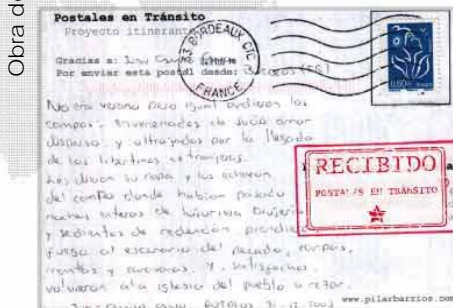 Obra de
Postales en Tránsito
Proyecto itinerante
BORDEAUX CTC
FRANCE
Gracias a:
Por enviar esta postal desde:
0,60€
No era verano pero igual ardían los
campos, envenenados de sucio amor
disperso y ultrajados por la llegada
de los libertinos extranjeros.
Les dieron su ropa y los echaron
del campo donde habían pasado
noches enteras de lujuriosa brujería
y sedientos de redención
fuego al escenario del pecado, cuerpos,
mentes y y satisfechos
volvieron a la iglesia del pueblo a rezar.
RECIBIDO
POSTALES EN TRÁNSITO
www.pilarbarrios.com